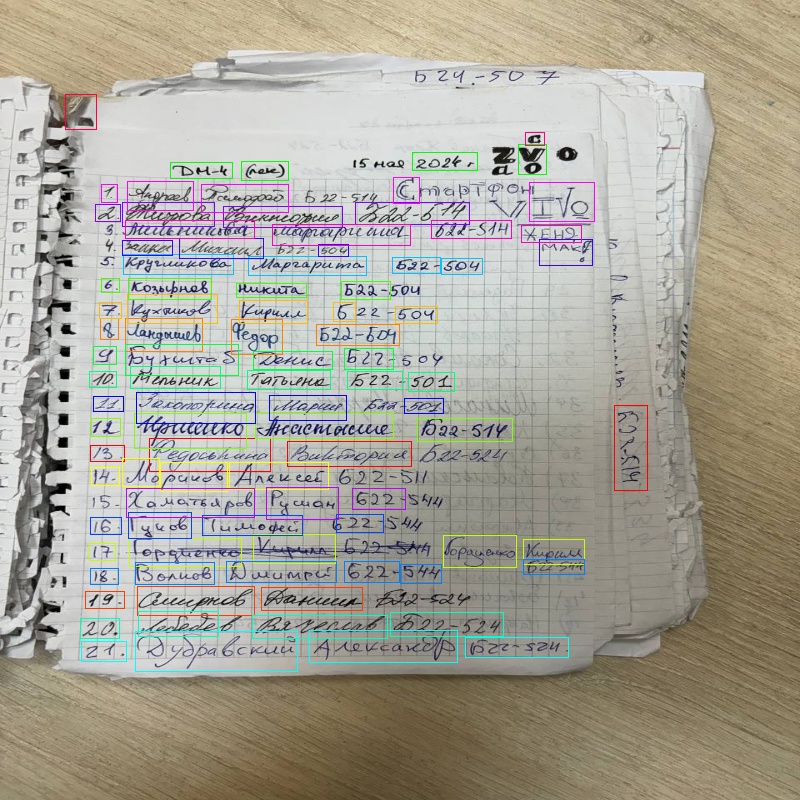 Б24.-507
ДМ-4 (лек) 15 мая 2024 г.
c
ZVO
do
1. Андреев Тимофей Б22-514 Стартфон
2. Жирова Виктория Б22-514 VI IVO
3. Мельникова Маргарина Б22-514 ЖЕНЯ
4. Михаил Б22-504 МАК!
5. Кругликова Маргарита Б22-504
6. Козырнов никита Б22-504
7. Кухтиков Кирилл Б22-504
8 Ландышев Федор Б22-504
9 Бухштаб Денис Б22-504
10. Мельник Татьяна Б22-501
11. Захопорина Мария Б22-501
12 Ириенко Анастасие Б22-514
13. Федоськина Виктория Б22-524
14. Мориков Алексей Б22-511
15. Хаматьяров Руслан Б22-544
16. Гуков Тимофей Б22-544
17 Гордиенко Кирилл Б22-544 Гордиенко Кирилл
Б22-544
18. Волков Дмитрий Б22-544
19. Смирнов Даниил Б22-524
20. Лебедев Вячеслав Б22-524
21. Дубравский Александр Б22-524
Б22-514